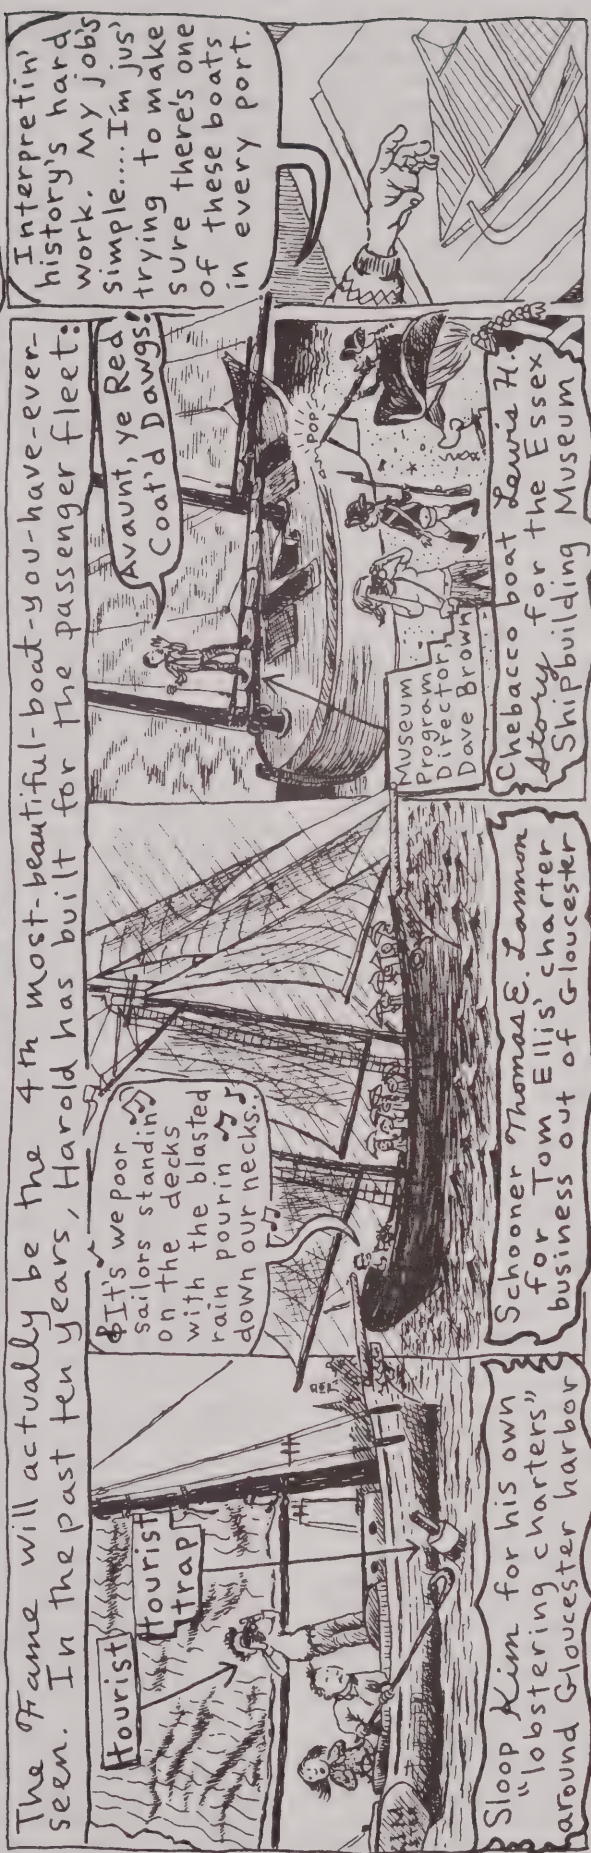 The Frame will actually be the 4th most-beautiful-boat-you-have-ever-
seen. In the past ten years, Harold has built for the passenger fleet:
tourist
tourist
trap
Sloop Kim for his own
"lobstering charters"
around Gloucester harbor
It's we poor
sailors standin'
on the decks
with the blasted
rain pourin
down our necks.
Schooner Thomas E. Lannon
for Tom Ellis' charter
business out of Gloucester
Avaunt, ye Red
Coat'd Dawgs!
POP
Museum
Program
Director,
Dave Brown
Chebacco boat Lewis H.
Story for the Essex
Shipbuilding Museum
Interpretin'
history's hard
work. My job's
simple....I'm jus'
trying to make
sure there's one
of these boats
in every port.